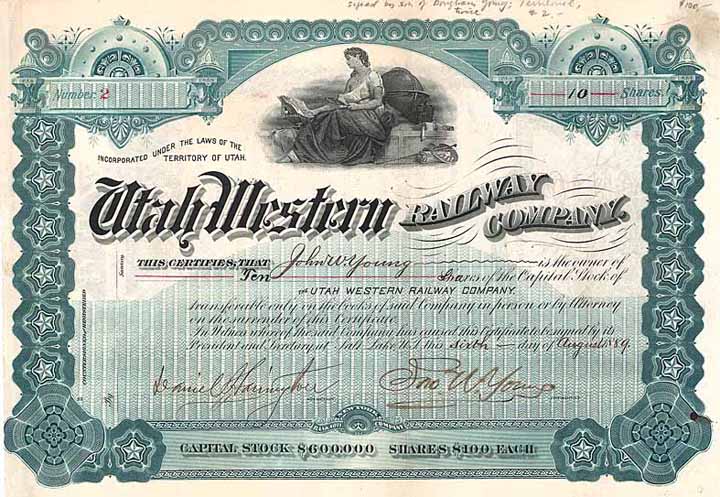 Signed by son of Brigham Young; Territorial,
twice
$2.-
$100,-
Number 2
10 Shares.
INCORPORATED UNDER THE LAWS OF THE
TERRITORY OF UTAH.
Utah Western RAILWAY COMPANY.
THIS CERTIFIES, THAT John W. Young is the owner of
Ten Shares of the Capital Stock of
THE UTAH WESTERN RAILWAY COMPANY.
transferable only on the books of said Company in person or by Attorney
on the surrender of this Certificate.
In Witness whereof the said Company has caused this Certificate to be signed by its
President and Secretary at Salt Lake, U.T. this sixth day of August 1889.
Secretary
COUNTERSIGNED & REGISTERED
By
Daniel Harrington
Jno W. Young
CAPITAL STOCK $600,000 SHARES $100 EACH